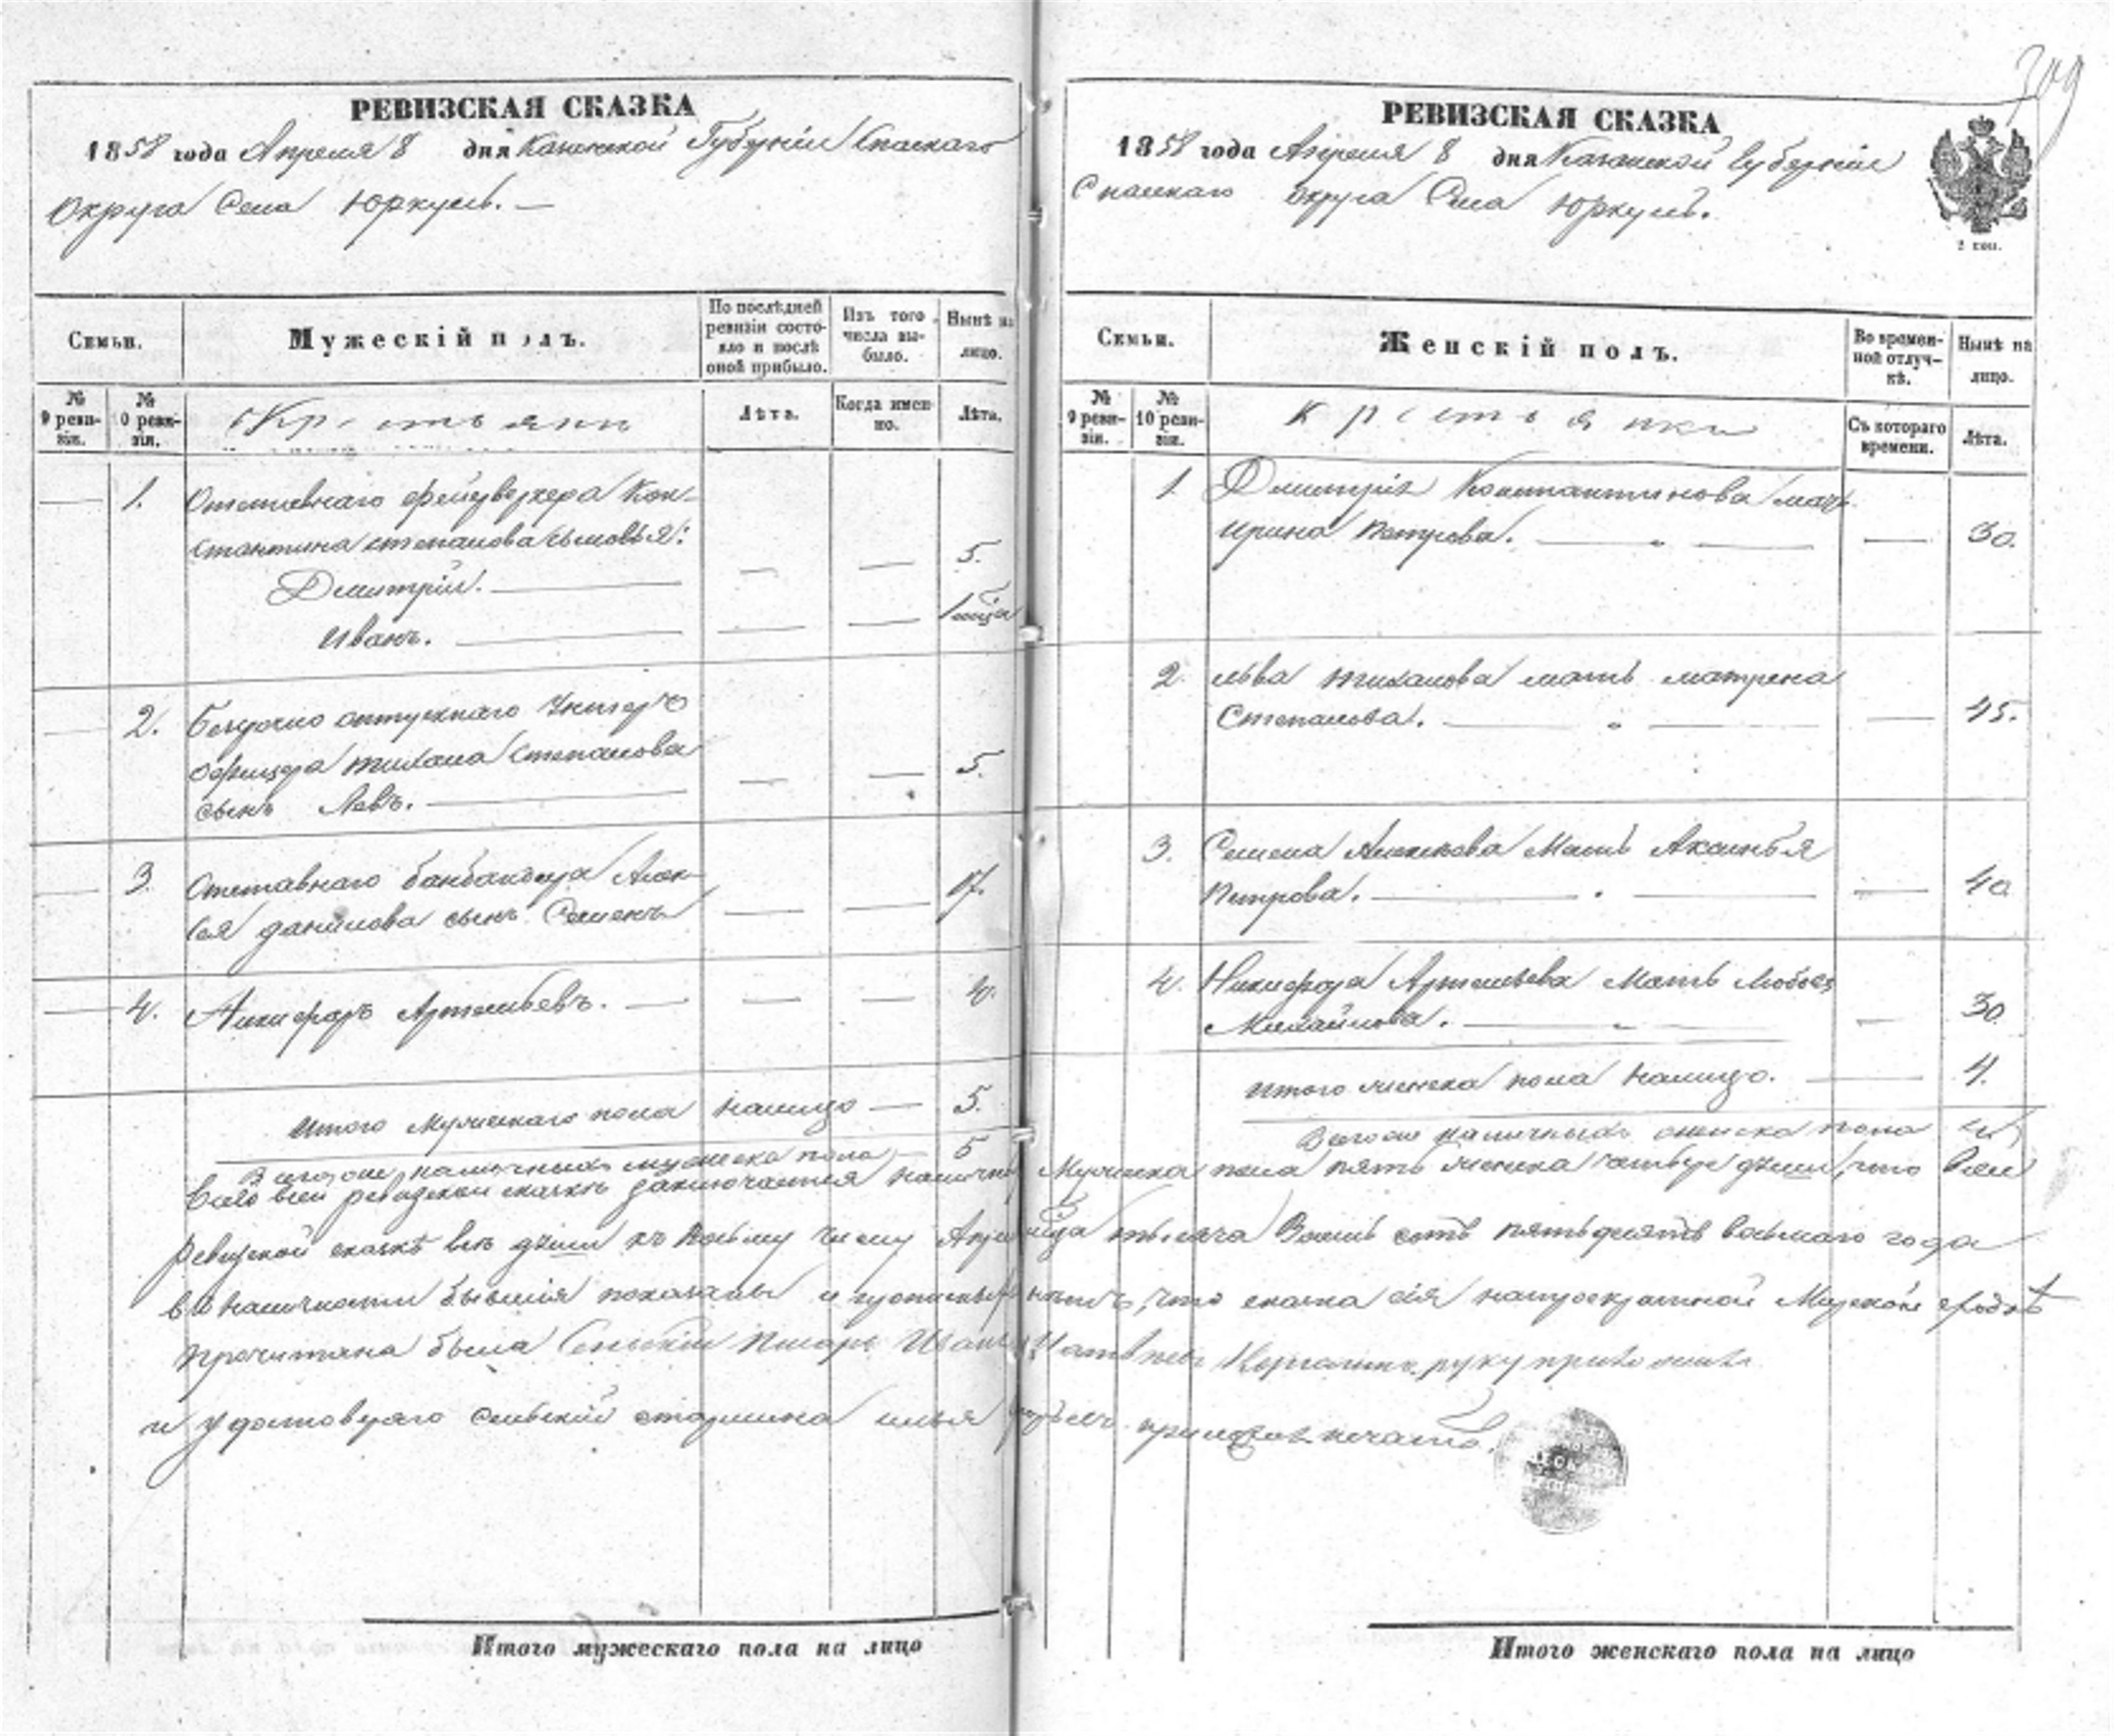 309
РЕВИЗСКАЯ СКАЗКА
1858 года Апреля 8 дня Казанской Губерніи Спаскаго
Округа Села Юркуль. —
Семьи.
Мужескій полъ.
По послѣдней ревизіи состояло и послѣ оной прибыло.
Изъ того числа выбыло.
Нынѣ на лицо.
№ 9 ревизіи.
№ 10 ревизіи.
Крестьяни
Лѣта.
Когда именно.
Лѣта.
1. Отставнаго фейерверкера Кон-
стантина степанова сыновья:
Дмитрій. — 5.
Иванъ. — 1 мѣца
2. безсрочно отпускнаго Унтеръ
офицера тихона степанова
сынъ Левъ. — 5.
3. Отставнаго банбандера Алек-
сѣя данилова сынъ Семенъ 17.
4. Никифоръ Артемьевъ. — 4.
Итого Мужескаго пола налицо — 5.
Всего же наличныхъ мужеска пола — 5
РЕВИЗСКАЯ СКАЗКА
1858 года Апреля 8 дня Казанской Губерніи
Спаскаго округа Села Юркуль.
2 коп.
Семьи.
Женскій полъ.
Во временной отлучкѣ.
Нынѣ на лицо.
№ 9 ревизіи.
№ 10 ревизіи.
Крестьянки
Съ котораго времени.
Лѣта.
1. Дмитрія Константинова мать
Ирина Петрова. — 30.
2. Льва тихонова мать матрена
Степанова. — 45.
3. Семена Алексѣева Мать Аксинья
Петрова. — 40
4. Никифора Артемьева Мать Любовь
Михайлова. — 30
Итого женска пола налицо. — 4.
Всего же наличныхъ женска пола 4
Всего всей ревизской сказкѣ заключается налично Мужеска пола пять женска четыре души, что всей
Ревизской сказкѣ всѣ души къ числу тысяча Восемь сотъ пятьдесятъ восьмаго года
въ наличности бывшія показаны и прописныхъ нѣтъ, что сказка сія на Мірской сходкѣ
прочитана была Сельскій Писарь Иванъ руку приложилъ
и удостоверяю сельскій старшина илья приложилъ печать.
Итого мужескаго пола на лицо
Итого женскаго пола на лицо